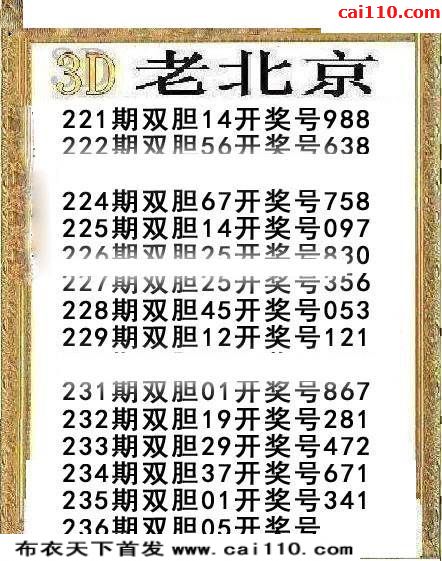 cai110.com
3D 老北京
221期双胆14开奖号988
222期双胆56开奖号638
224期双胆67开奖号758
225期双胆14开奖号097
226期双胆25开奖号830
227期双胆25开奖号356
228期双胆45开奖号053
229期双胆12开奖号121
231期双胆01开奖号867
232期双胆19开奖号281
233期双胆29开奖号472
234期双胆37开奖号671
235期双胆01开奖号341
236期双胆05开奖号
布衣天下首发 www.cai110.com